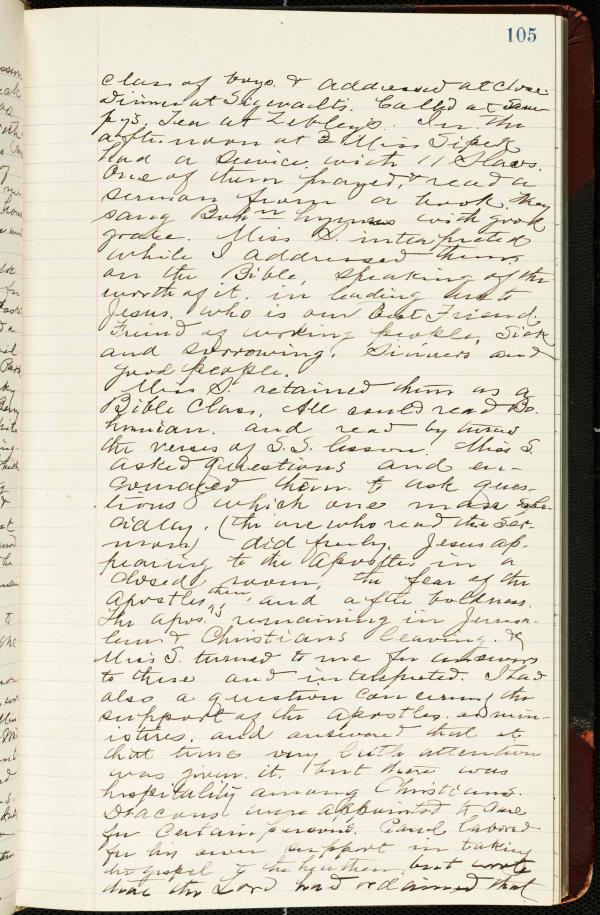 105
class of boys & addressed at close.
Dinner at Sigwalts. Called at Sem-
py's, Tea at Zibley's. In the
afternoon at 3 Miss
had a service with 11 Slavs.
One of them prayed, & read a
sermon from a book, They
sang Boh'n hymns with good
grace. Miss S. interpreted
while I addressed them
on the Bible, speaking of the
worth of it, in leading us to
Jesus, who is our best Friend.
Friend of working people, Sick
and sorrowing, Sinners and
good people.
Miss S. retained them as a
Bible Class, All could read Bo-
hemian, and read by turns
the verses of S.S. lesson. Miss S.
asked questions and en-
couraged them to ask ques-
tions which one man espe-
cially, (the one who read the ser-
mon) did freely. Jesus ap-
pearing to the Apostles in a
closed room, the fear of the
Apostles then, and after boldness.
The Apos'ls remaining in Jerusa-
lem & Christians leaving. &
Miss S. turned to me for answers
to these and interpreted. I had
also a question concerning the
support of the Apostles, as min-
isters, and answered that at
that time very little attention
was given it, but there was
hospitality among Christians.
Deacons were appointed to care
for certain persons. Paul labored
for his own support in taking
the gospel to the heathen but wrote
that the Lord had ordained that